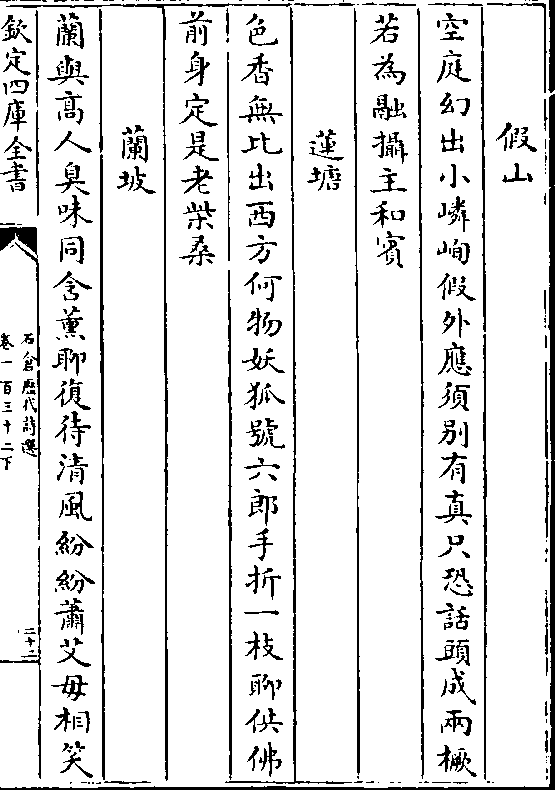 假山
空庭幻出小嶙峋假外應須别有真只恐話頭成兩橛
若為融攝主和賓
蓮塘
色香無比出西方何物妖狐號六郎手折一枝聊供佛
前身定是老柴桑
蘭坡
蘭與高人臭味同含薰聊復待清風紛紛蕭艾毋相笑
欽定四庫全書
石倉歷代詩選
卷一百三十二下
二十二